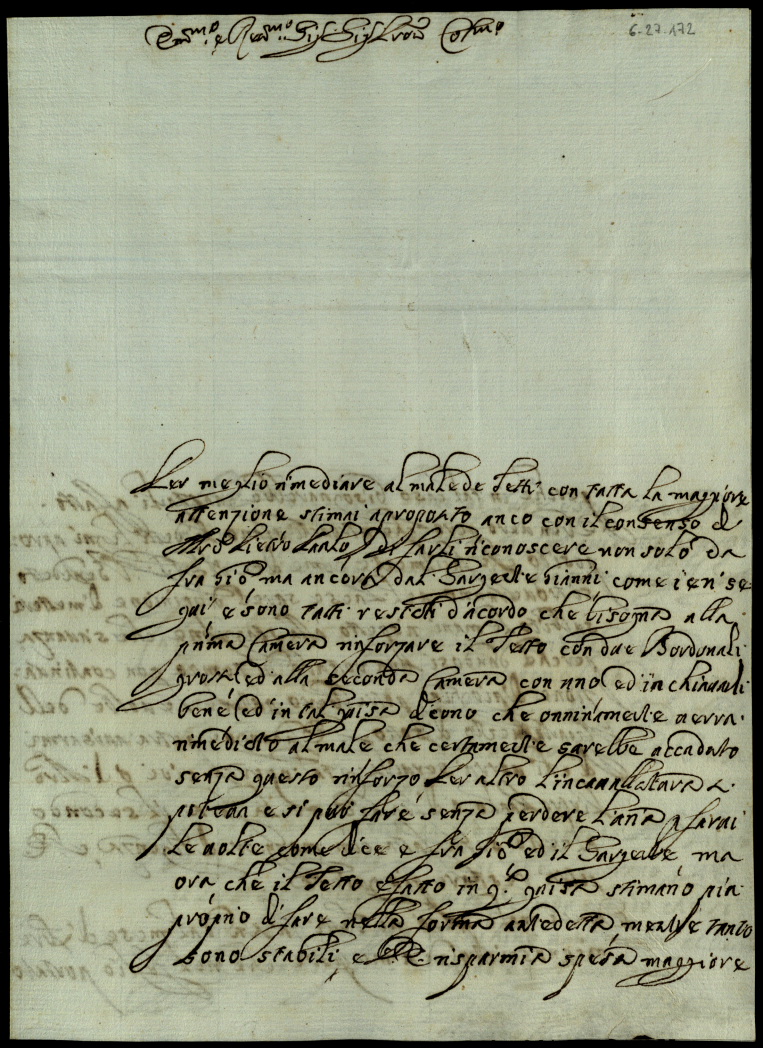 Em.mo e Rev.mo Sig.r Sig.r Pron Col.mo
6-27-172
Per meglio rimediare al male de Tetti con tutta la maggiore
attenzione stimai aproposito anco con il consenso di
Pietro Paolo di farli riconoscere non solo da
fra Gio ma ancora dal Sargente Gianni come ieri se-
gui e sono tutti restati d'acordo che bisogna alla
prima Camera rinforzare il Tetto con due Bordonali
grossi ed alla seconda Camera con uno ed inchiauarli
bene ed in tal guisa dicono che onninamente uerra
rimediato al male che certamente sarebbe accaduto
senza questo rinforzo Per altro l'incauallatura
poteua e si può fare senza perdere l'aria p farui
le uolte come dice e fra Gio ed il Sargente ma
ora che il Tetto e fatto in q.ta guisa stimano piu
proprio di fare nella forma antedetta mentre tanto
sono stabili e risparmia spesa maggiore